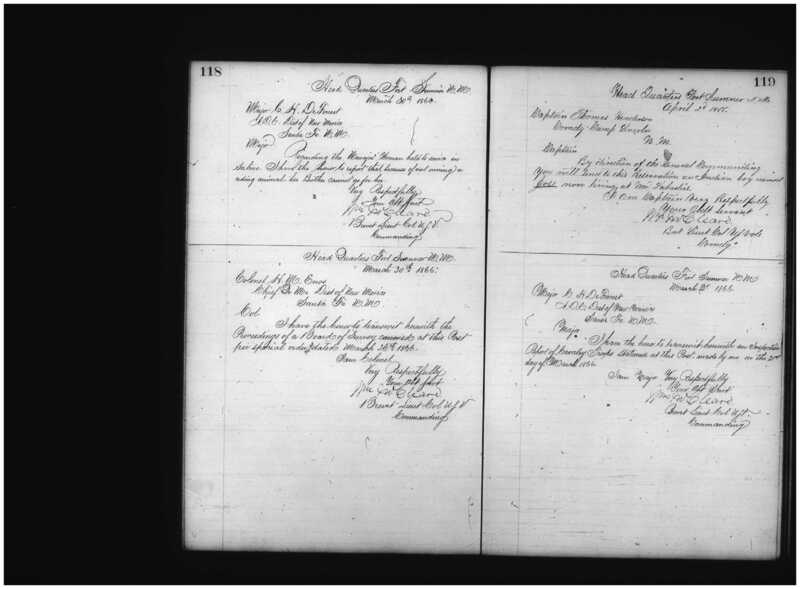 118
Head Quarters Fort Sumner N.M.
March 30th 1866.
Major C. H. DeForrest
A.A.G. Dist of New Mexico
Santa Fe N.M.
Major
Regarding the Navajoe Woman held to service in
I have the honor to report that because of not owning a
riding animal her Brother cannot go for her.
Very Respectfully
Your Obt Servt
Wm McCleave
Brevet Lieut Col U.S.V.
Commanding
Head Quarters Fort Sumner N.M.
March 30th 1866.
Colonel H. M. Enos
Chief Qr Mr Dist of New Mexico
Santa Fe N.M.
Col
I have the honor to transmit herewith the
Proceedings of a Board of Survey convened at this Post
per special order dated March 26th 1866.
I am Colonel
Very Respectfully
Your Obt Servt
Wm McCleave
Brevet Lieut Col U.S.V
Commanding
119
Head Quarters Fort Sumner N.M.
April 1866.
Captain Thomas
Comdg Camp Lincoln
N. M.
Captain
By direction of the General Commanding
You will send to this Reservation an Indian boy named
now living at
I am Captain Very Respectfully
Your Obdt servant
Wm McCleave
Bvt Lieut Col U.S. Vols
Comdg
Head Quarters Fort Sumner N.M.
March 1866
Major C. H. DeForrest
A.A.G. Dist of New Mexico
Santa Fe N.M.
Major
I have the honor to transmit herewith an Inspection
Report of Cavalry Troops stationed at this Post made by me on the
day of March 1866
I am Major Very Respectfully
Your Obt Servt
Wm McCleave
Brevet Lieut Col U.S.V.
Commanding